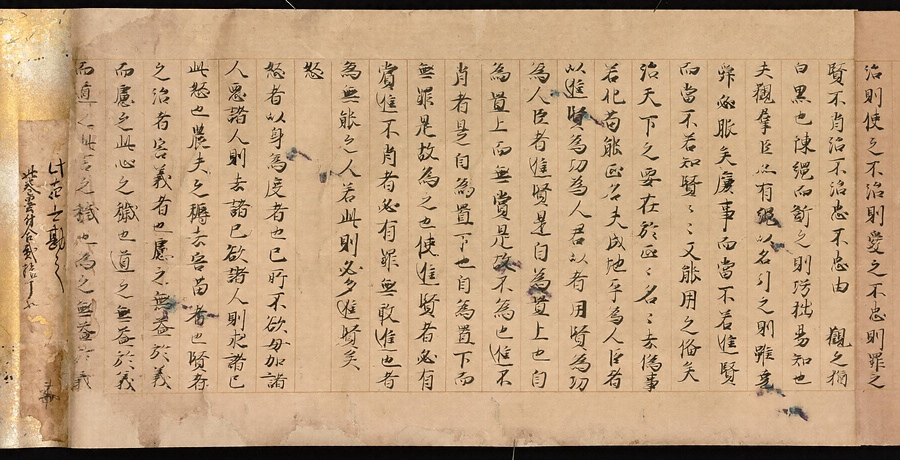 治則使之不治則愛之不忠則罪之
賢不肖治不治忠不忠由 觀之猶
白黒也陳繩而斲之則巧拙易知也
夫觀羣臣亦有繩以名引之則雖堯
舜必服矣慮事而當不若進賢
而當不若知賢〻〻又能用之備矣
治天下之要在於正〻名〻去僞事
若化苟能正名天成地平為人臣者
以進賢為功為人君以者用賢為功
為人臣者進賢是自為置上也自
為置上而無賞是故不為也進不
肖者是自為置下也自為置下而
無罪是故為之也使進賢者必有
賞進不肖者必有罪無敢進也者
為無能之人若此則必多進賢矣
恕
恕者以身為度者也己所不欲毋加諸
人惡諸人則去諸己欲諸人則求諸己
此恕也農夫之耨去害苗者也賢者
之治者害義者也慮之無益於義
而慮之此心之穢也道之無益於義
而道之此言之穢也為之無益於義